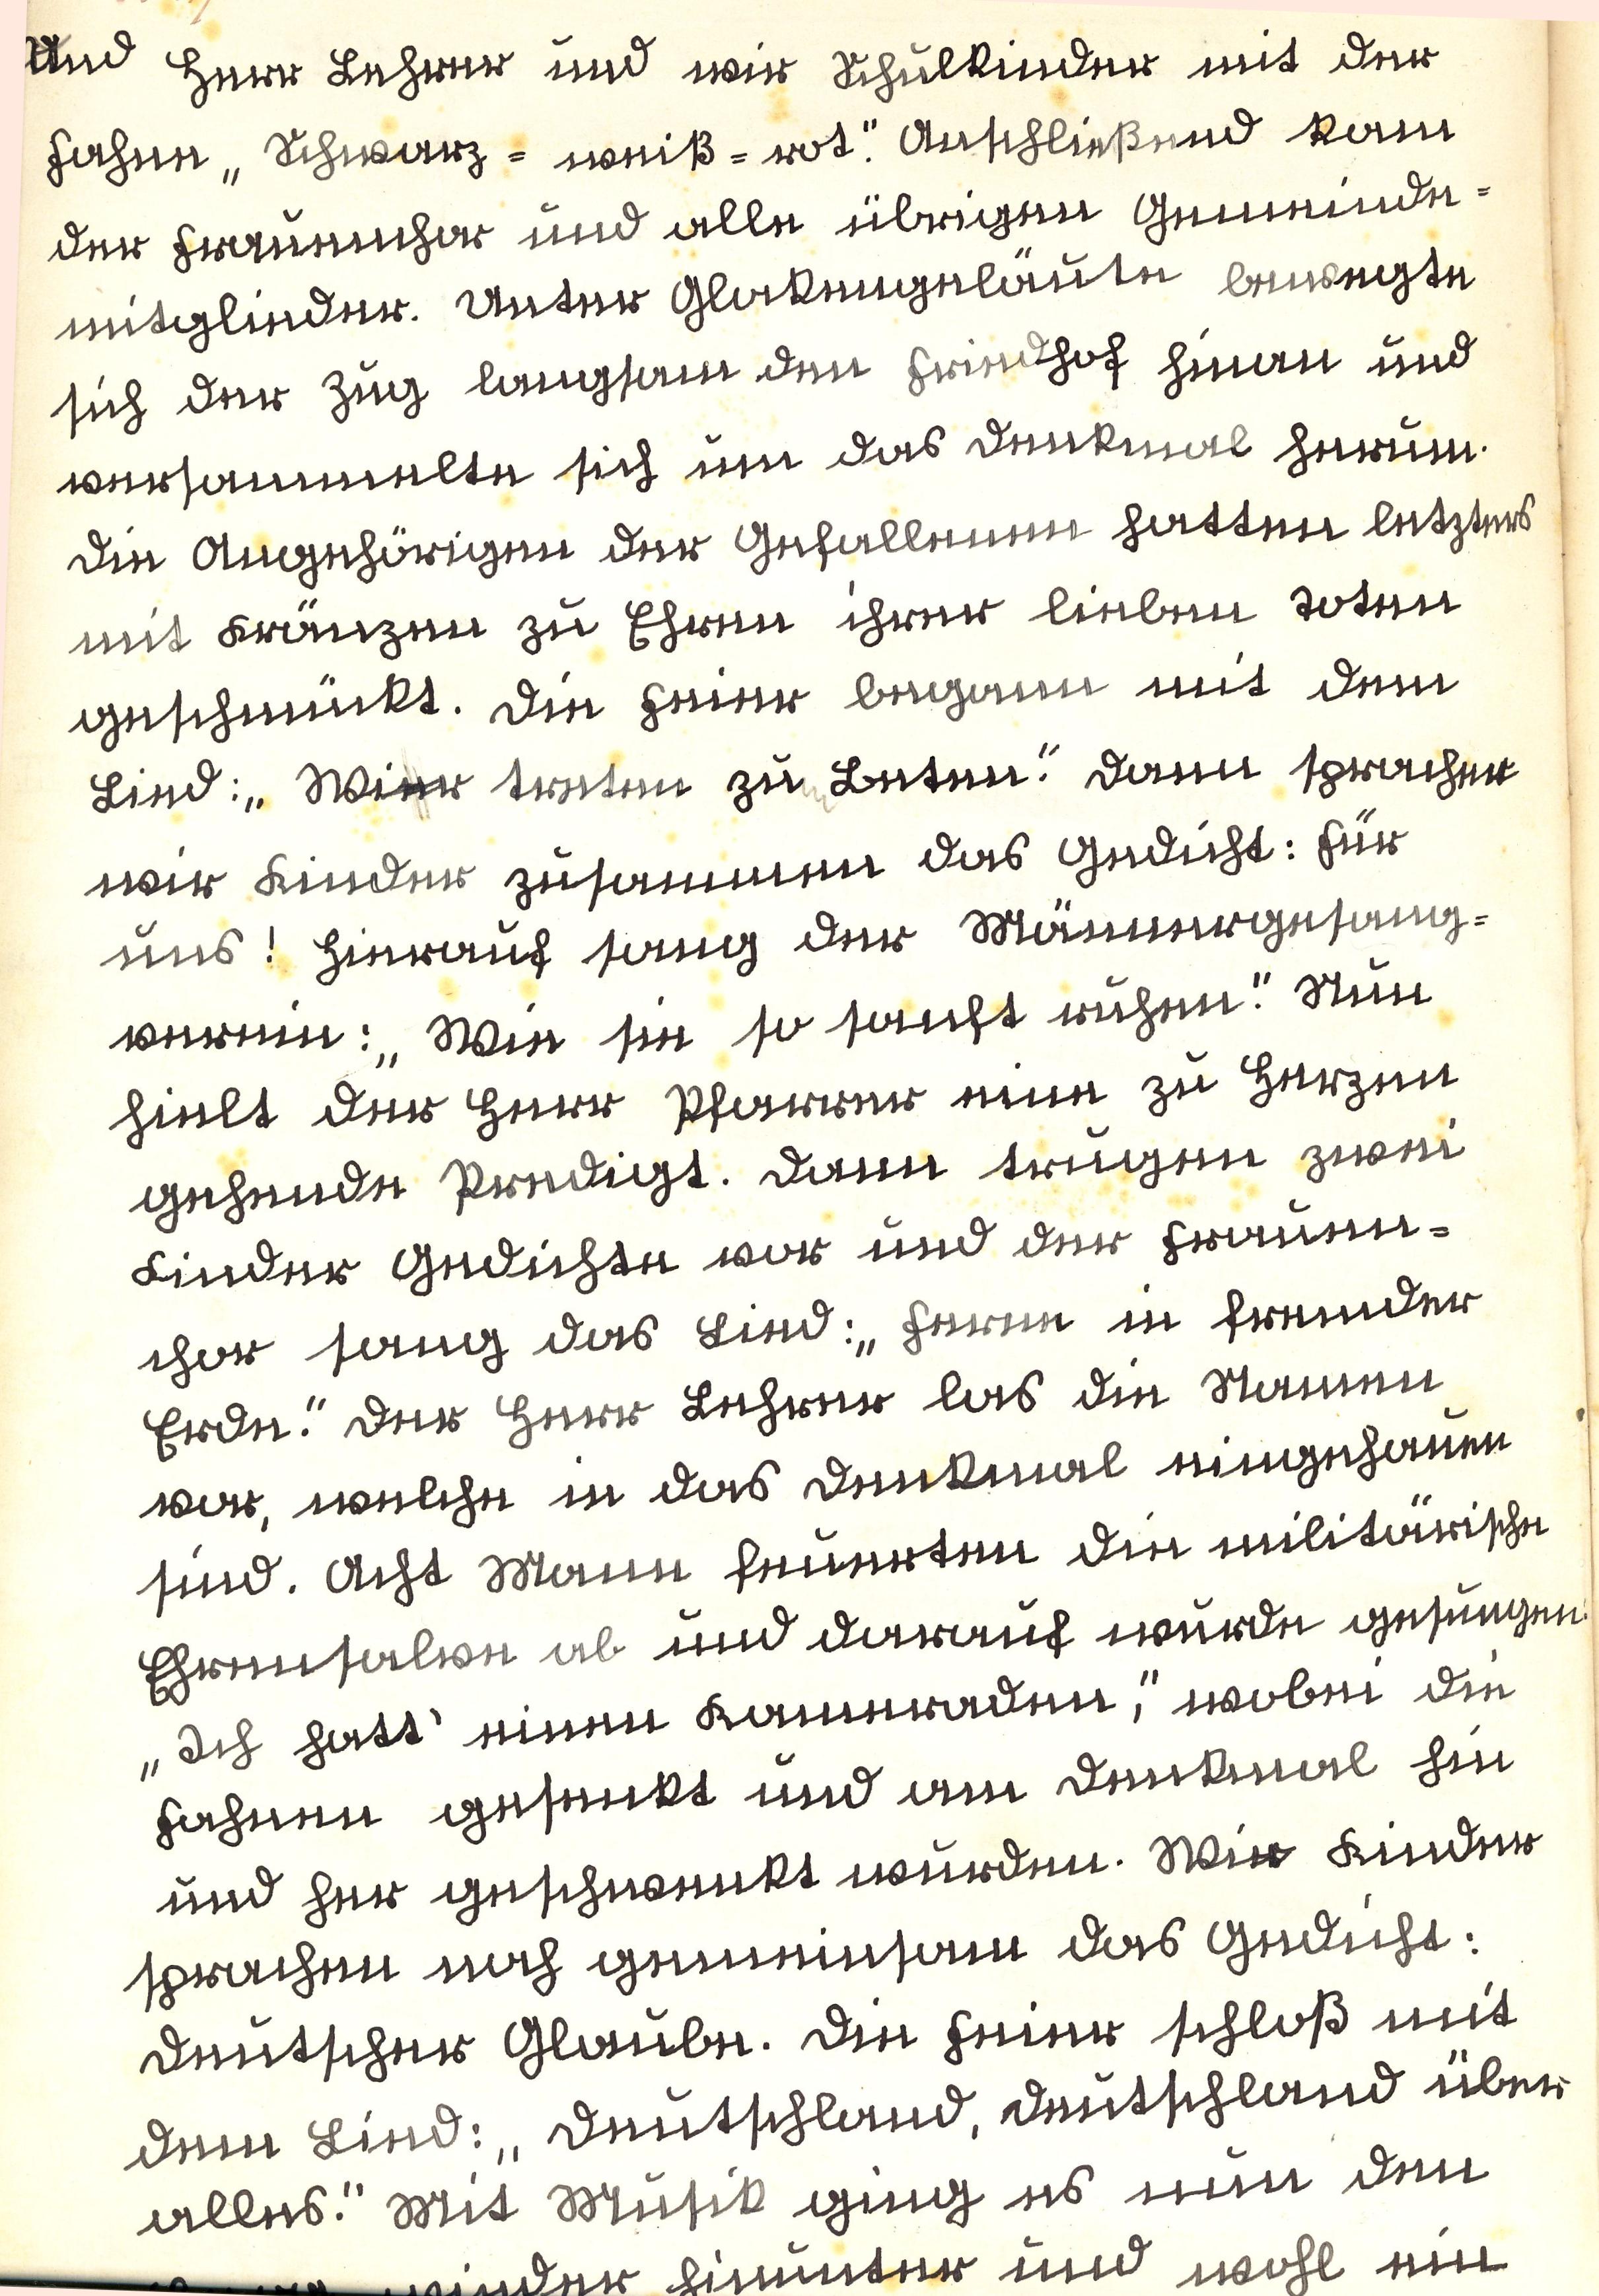 Und Herr Lehrer und wir Schulkinder mit der
Fahne „Schwarz=weiß=rot“. Anschließend kam
der Frauenchor und alle übrigen Gemeinde=
mitglieder. Unter Glokengeläute bewegte
sich der Zug langsam den Friedhof hinan und
versammelte sich um das Denkmal herum.
Die Angehörigen der Gefallenen hatten letzters
mit Kränzen zu Ehren ihrer lieben Toten
geschmückt. Die Feier begann mit dem
Lied: „Wir treten zu Beten.“ Dann sprachen
wir Kinder zusammen das Gedicht: Für
uns! Hierauf sang der Männergesang=
verein: „Wie sie so sanft ruhen.“ Nun
hielt der Herr Pfarrer eine zu Herzen
gehende Predigt. Dann trugen zwei
Kinder Gedichte vor und der Frauen=
chor sang das Lied: „Ferne in fremder
Erde.“ Der Herr Lehrer las die Namen
vor, welche in das Denkmal eingehauen
sind. Acht Mann feuerten die militärische
Ehrensalve ab und darauf wurde gesungen:
„Ich hatt' einen Kameraden,“ wobei die
Fahnen gesenkt und am Denkmal hin
und her geschwenkt wurden. Wir Kinder
sprachen noch gemeinsam das Gedicht:
Deutscher Glaube. Die Feier schloß mit
dem Lied: „Deutschland, Deutschland über
alles.“ Mit Musik ging es nun den
wieder hinunter und wohl ein